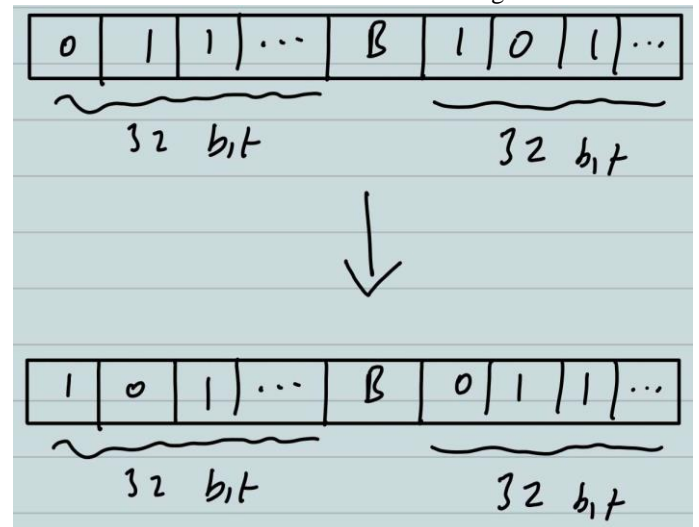 0 1 1 ... B 1 0 1 ...
32 bit 32 bit
1 0 1 ... B 0 1 1 ...
32 bit 32 bit